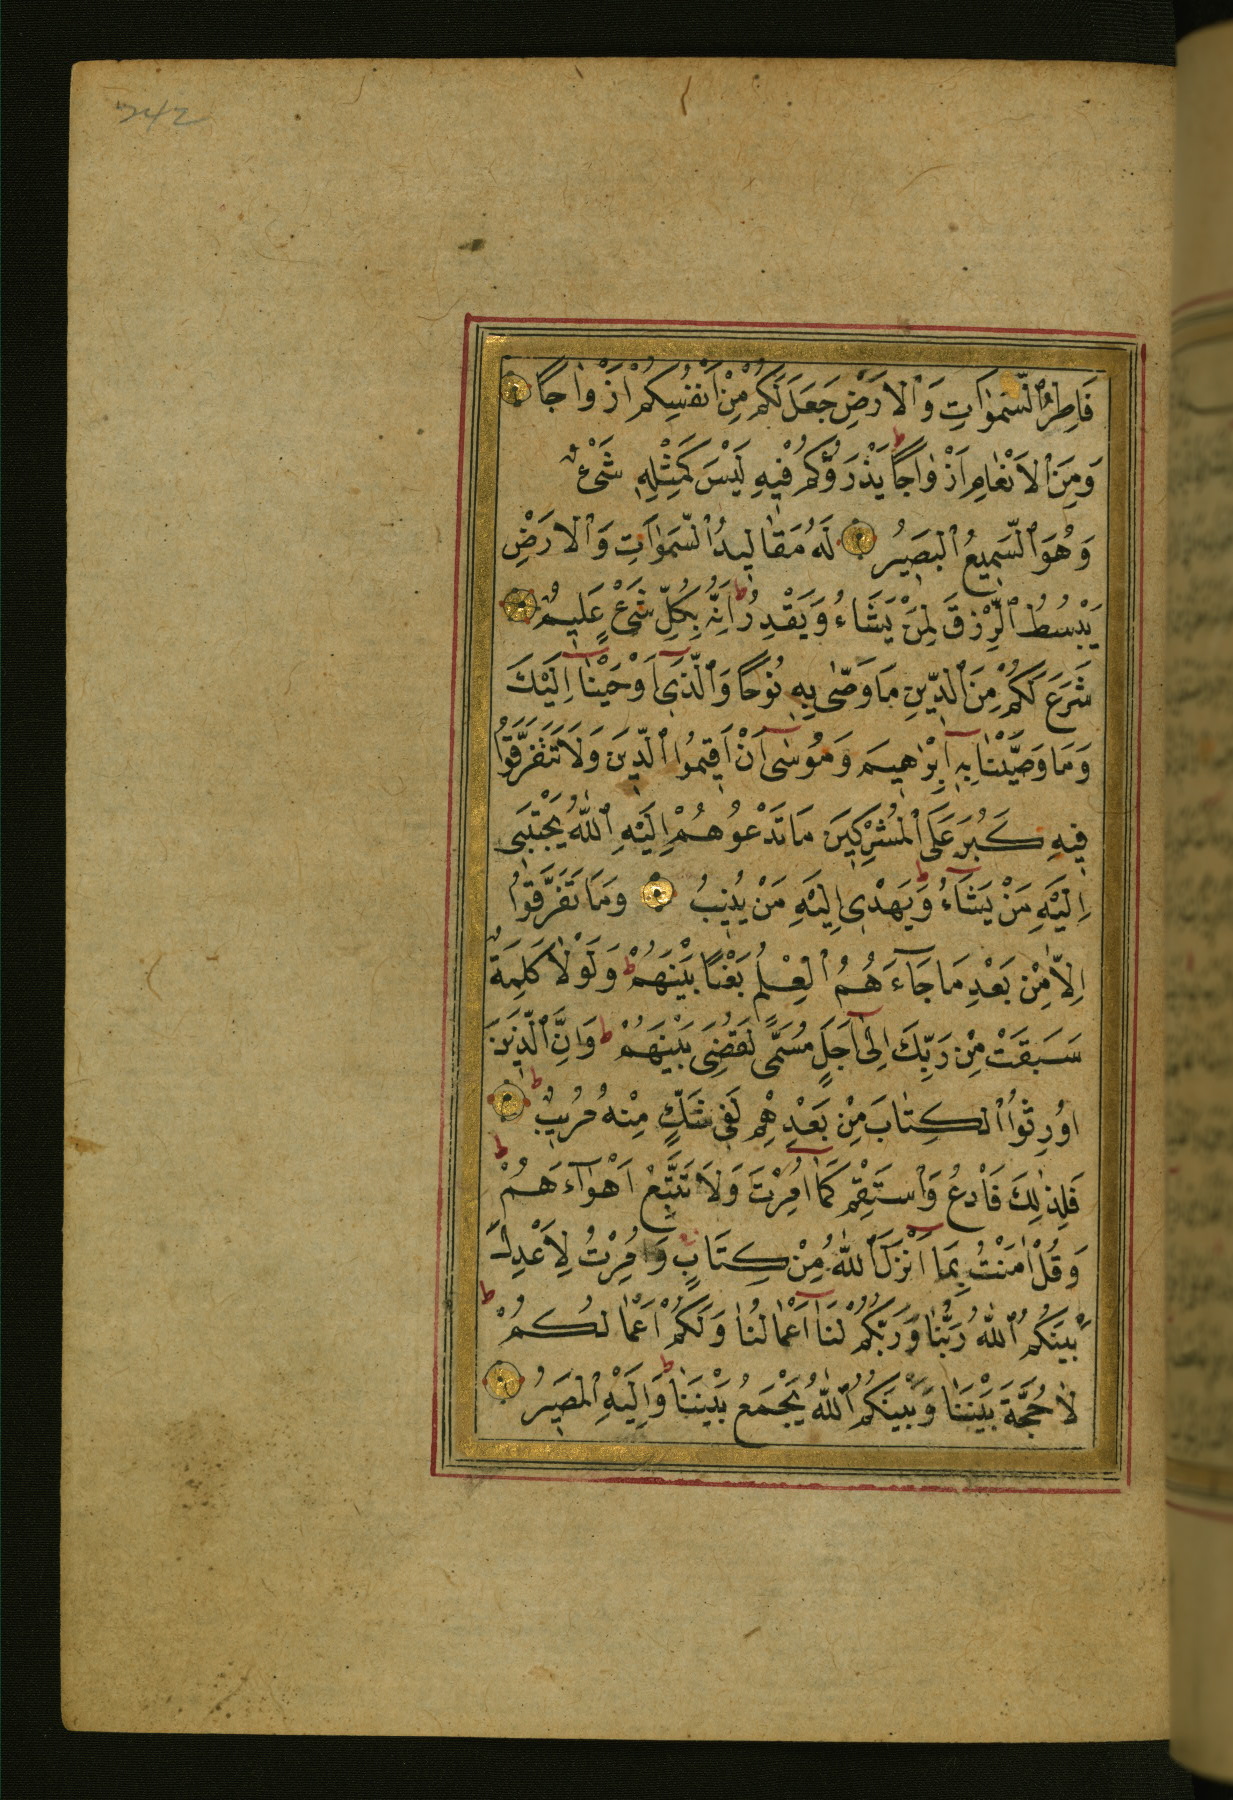 242
فَاطِرُ ٱلسَّمٰوَاتِ وَٱلْاَرْضِ جَعَلَ لَكُمْ مِنْ اَنْفُسِكُمْ اَزْوَاجًا
وَمِنَ ٱلْاَنْعَامِ اَزْوَاجًا ط يَذْرَؤُكُمْ فِيهِ لَيْسَ كَمِثْلِهِ شَىْءٌ
وَهُوَ ٱلسَّمِيعُ ٱلْبَصِيرُ لَهُ مَقَالِيدُ ٱلسَّمٰوَاتِ وَٱلْاَرْضِ
يَبْسُطُ ٱلرِّزْقَ لِمَنْ يَشَاءُ وَيَقْدِرُ ط اِنَّهُ بِكُلِّ شَىْءٍ عَلِيمٌ
شَرَعَ لَكُمْ مِنَ ٱلدِّينِ مَا وَصّٰى بِهِ نُوحًا وَٱلَّذِى اَوْحَيْنَا اِلَيْكَ
وَمَا وَصَّيْنَا بِهِ اِبْرٰهِيمَ وَمُوسٰى اَنْ اَقِيمُوا ٱلدِّينَ وَلَا تَتَفَرَّقُوا
فِيهِ كَبُرَ عَلَى ٱلْمُشْرِكِينَ مَا تَدْعُوهُمْ اِلَيْهِ ٱللّٰهُ يَجْتَبِى
اِلَيْهِ مَنْ يَشَاءُ ط وَيَهْدِى اِلَيْهِ مَنْ يُنِيبُ وَمَا تَفَرَّقُوا
اِلَّا مِنْ بَعْدِ مَا جَاءَهُمُ ٱلْعِلْمُ بَغْيًا بَيْنَهُمْ ط وَلَوْلَا كَلِمَةٌ
سَبَقَتْ مِنْ رَبِّكَ اِلٰى اَجَلٍ مُسَمًّى لَقُضِىَ بَيْنَهُمْ ط وَاِنَّ ٱلَّذِينَ
اُورِثُوا ٱلْكِتَابَ مِنْ بَعْدِهِمْ لَفِى شَكٍّ مِنْهُ مُرِيبٍ ط
فَلِذٰلِكَ فَادْعُ وَٱسْتَقِمْ كَمَا اُمِرْتَ وَلَا تَتَّبِعْ اَهْوَاءَهُمْ ط
وَقُلْ اٰمَنْتُ بِمَا اَنْزَلَ ٱللّٰهُ مِنْ كِتَابٍ وَاُمِرْتُ لِاَعْدِلَ
بَيْنَكُمْ ٱللّٰهُ رَبُّنَا وَرَبُّكُمْ لَنَا اَعْمَالُنَا وَلَكُمْ اَعْمَالُكُمْ ط
لَا حُجَّةَ بَيْنَنَا وَبَيْنَكُمْ ٱللّٰهُ يَجْمَعُ بَيْنَنَا ط وَاِلَيْهِ ٱلْمَصِيرُ